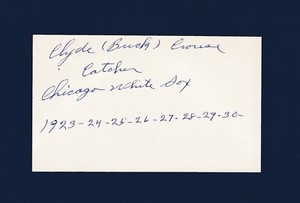 Clyde (Buck) Crouse
Catcher
Chicago White Sox
1923-24-25-26-27-28-29-30-